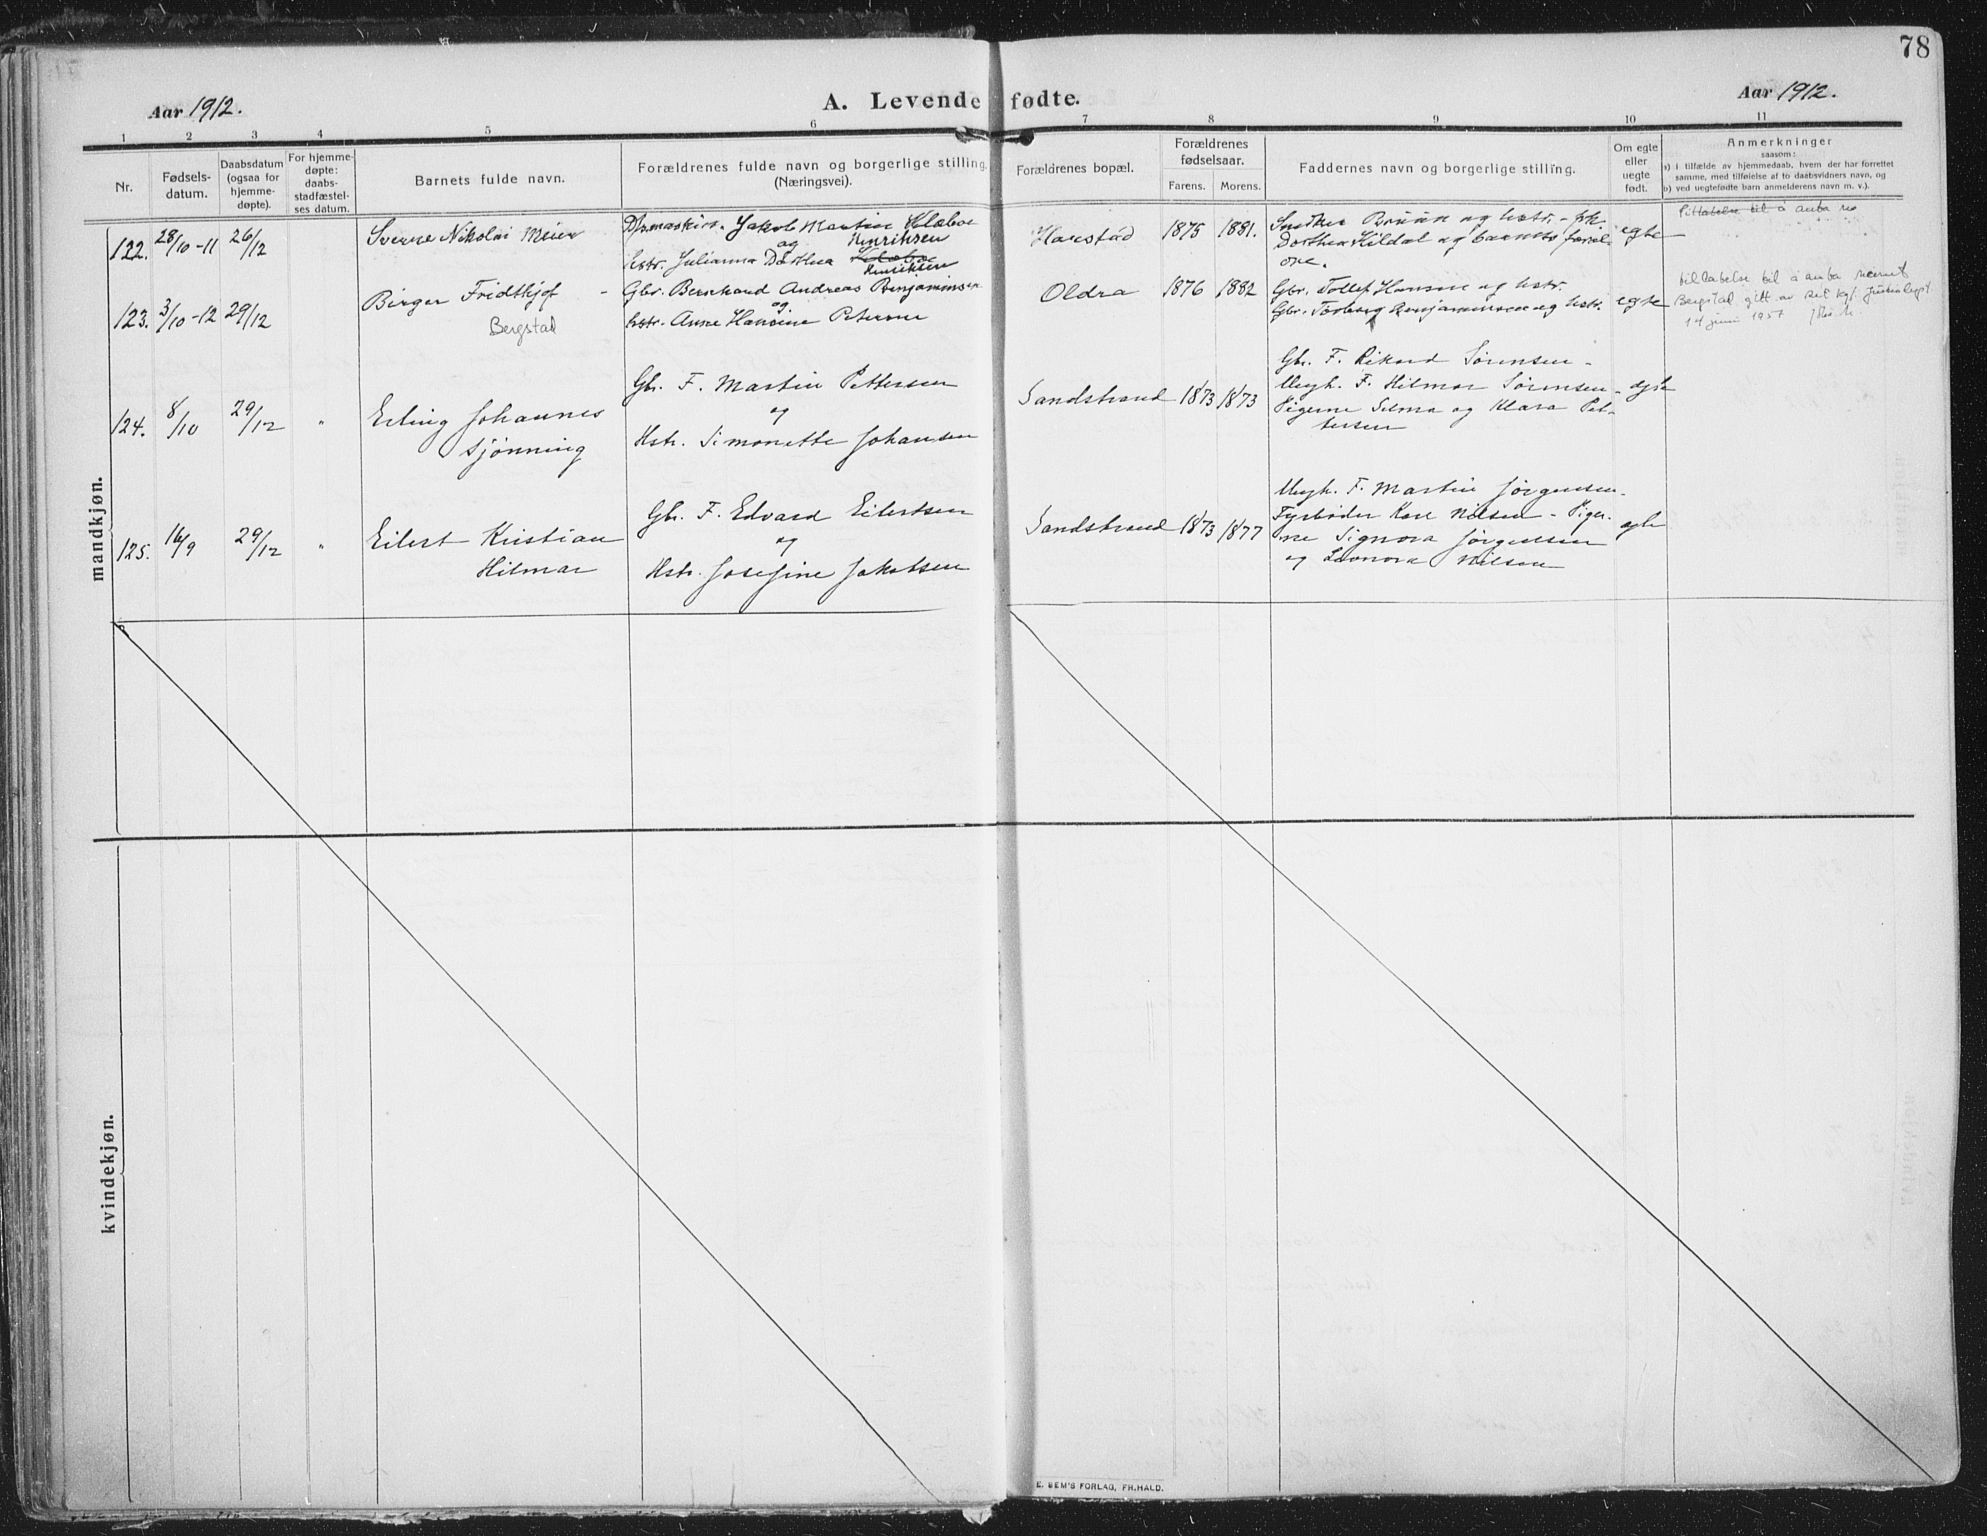 78
Aar 1912.
A. Levende fødte.
Aar 1912.
1 2 3 4 5 6 7 8 9 10 11
Nr.
Fødsels-
datum.
Daabsdatum
(ogsaa for
hjemme-
døpte).
For hjemme-
døpte:
daabs-
stadfæstel-
ses datum.
Barnets fulde navn.
Forældrenes fulde navn og borgerlige stilling
(Næringsvei).
Forældrenes bopæl.
Forældrenes
fødselsaar.
Farens. Morens.
Faddernes navn og borgerlige stilling.
Om egte
eller
uegte
født.
Anmerkninger
saasom:
a) i tilfælde av hjemmedaab, hvem der har forrettet
samme, med tilføielse af to daabsvidners navn, og
b) ved uegtefødte barn anmelderens navn m. v.).
mandkjøn.
122. 28/10-11 26/12 Sverre Nikolai Meier
Jakob Martin Klæboe
Henriksen
og
hstr. Julianna Dorthea Klæboe
Henriksen
Harstad 1875 1881.
Snedker Bruun og hstr. - frk.
Dorthea Kildal og barnets foræl-
dre.
egte
Tillatelse til å anta
123. 3/10-12 29/12 Birger Fridthjof -
Bergstad
Gbr. Bernhard Andreas Benjaminsen
og
hstr. Anne Hansine Peterine
Oldra 1876 1882
Gbr. Tollef Hansen og hstr.
Gbr. Torberg Benjaminsen og hstr.
egte
tillatelse til å anta navnet
Bergstad gitt av Det kgl. justisdept
14 juni 1957
124. 8/10 29/12 " Erling Johannes
Sjønning
Gbr. F. Martin Pettersen
og
Hstr. Simonette Johansen
Sandstrand 1873 1873
Gbr. F. Rikard Sørensen -
Ungk. F. Hilmar Sørensen -
Pigerne Selma og Klara Pet-
tersen
egte
125. 16/9 29/12 " Eilert Kristian
Hilmar
Gbr. F. Edvard Eilertsen
og
Hstr. Josefine Jakobsen
Sandstrand 1873 1877
Ungk. F. Martin Jørgensen -
Fyrbøder Kare Nilsen - Piger-
ne Signora Jørgensen
og Leonora Nilsen
egte
kvindekjøn.
E. SEM'S FORLAG, FR.HALD.